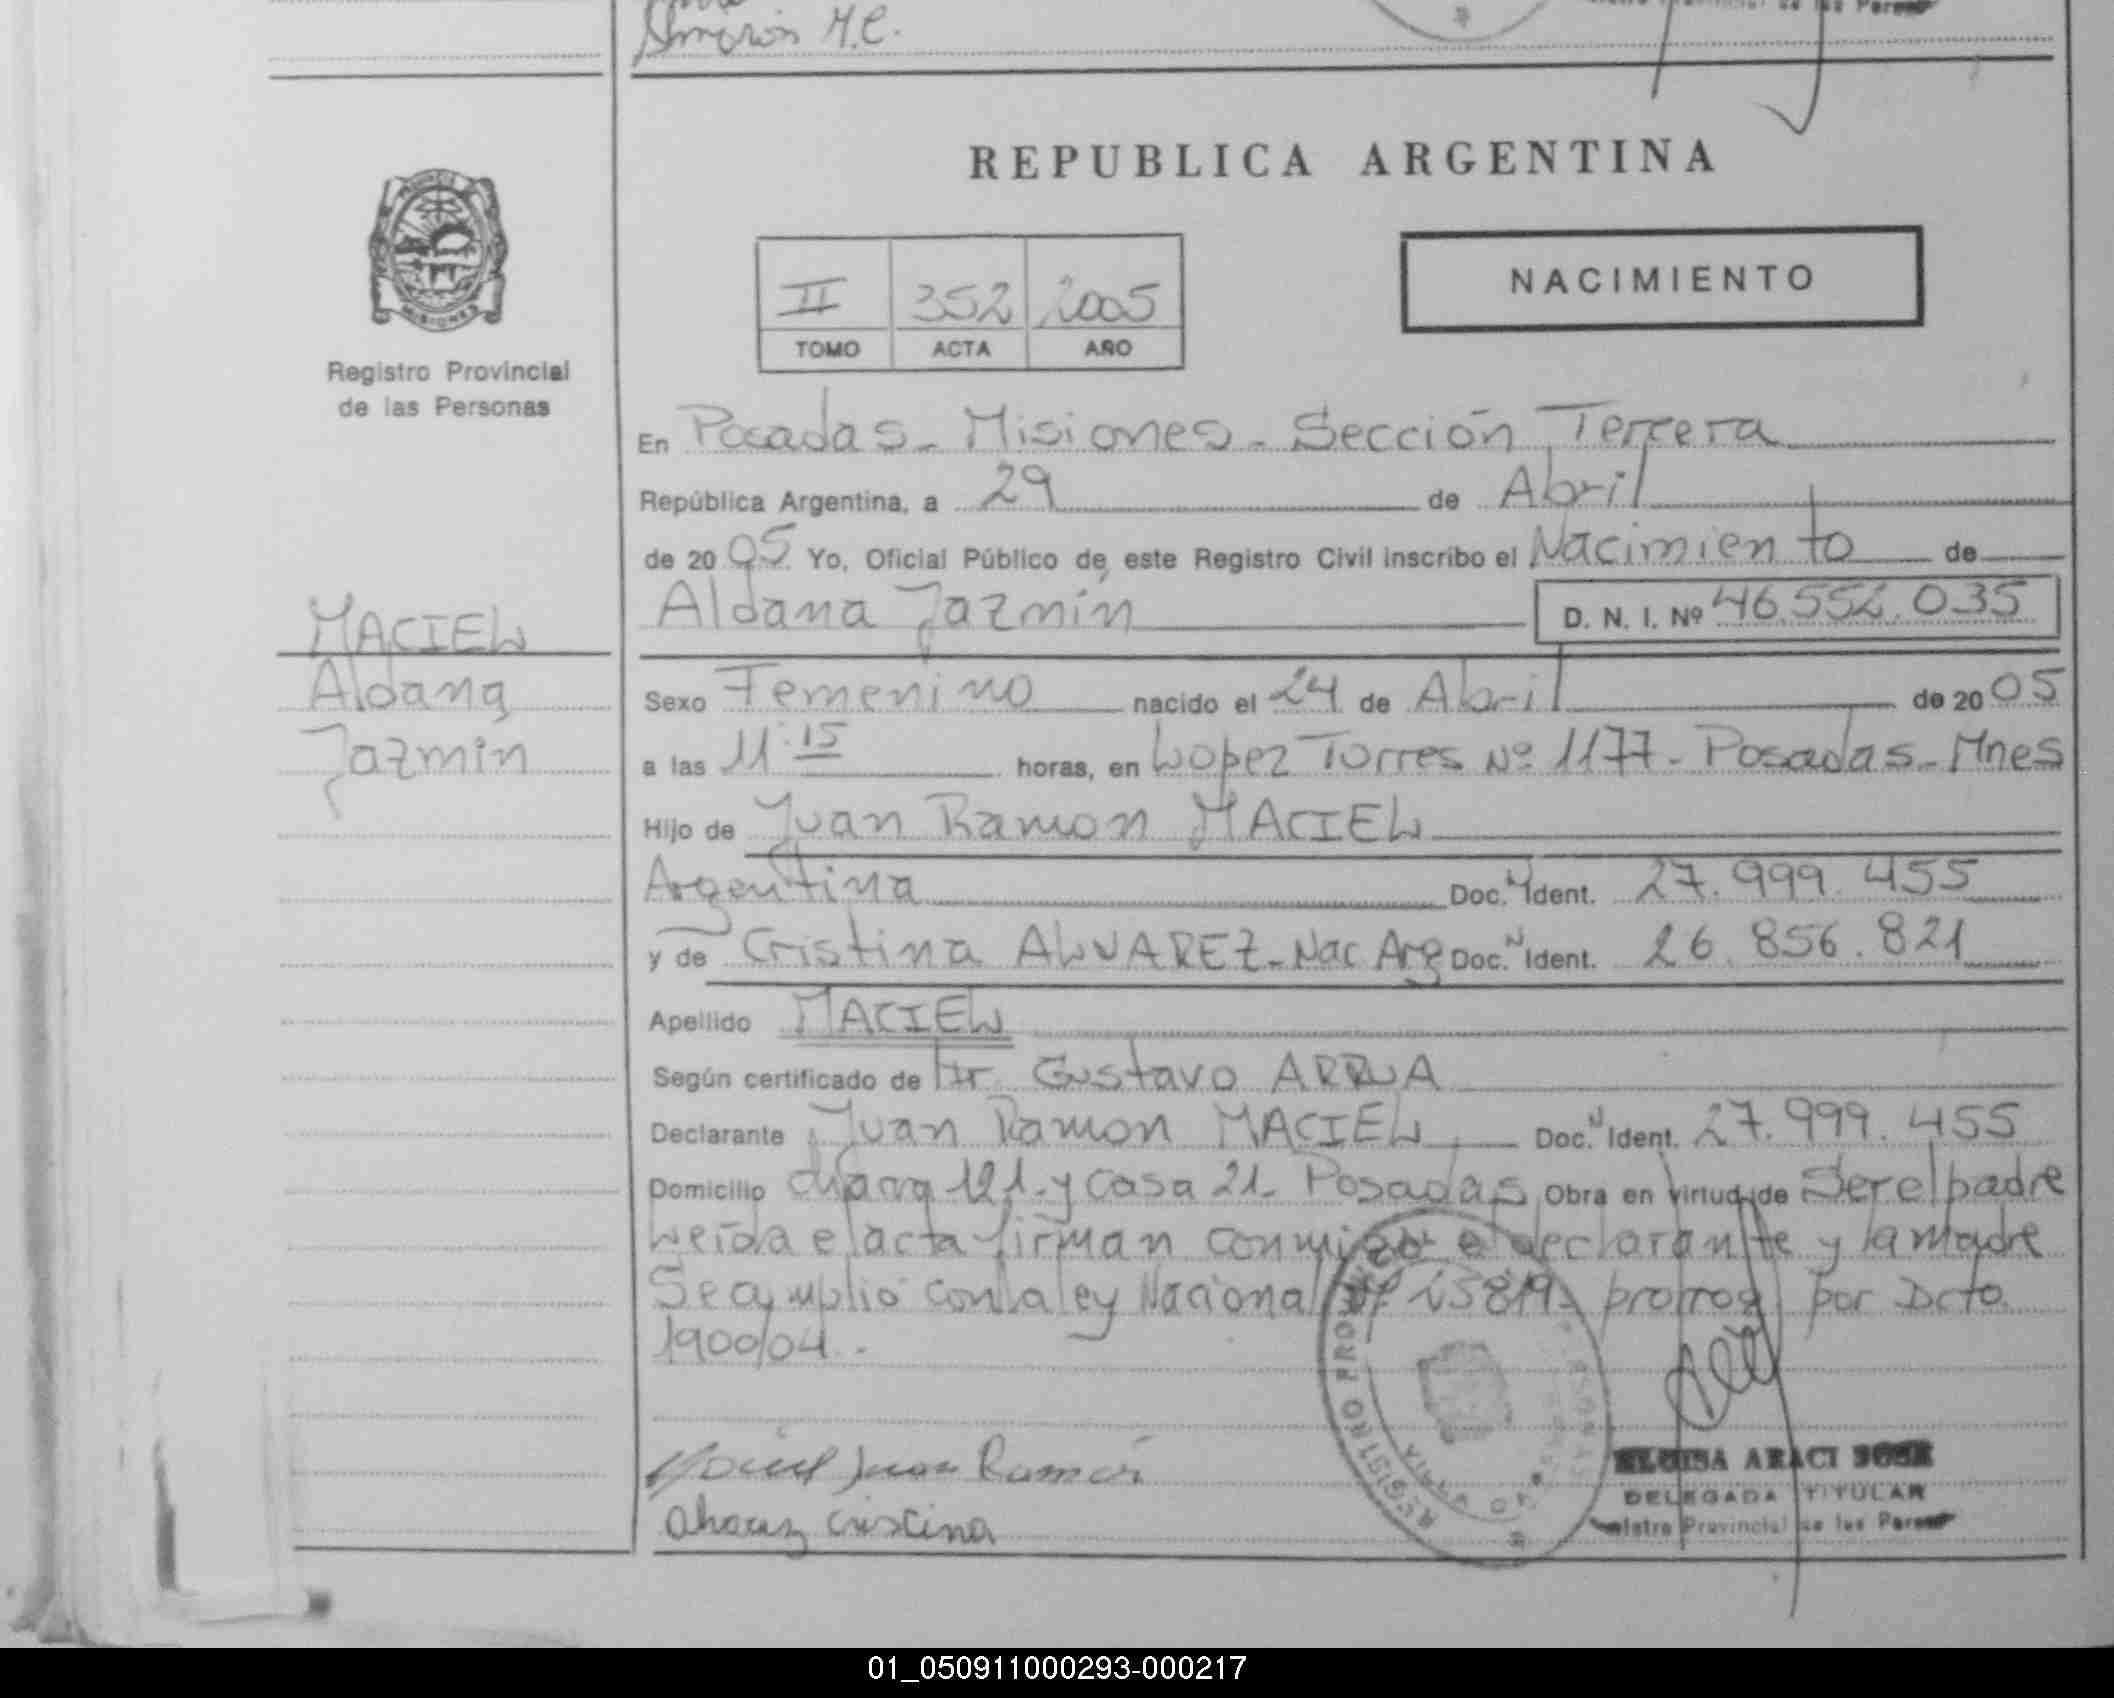 Almirón M.C.
REPUBLICA ARGENTINA
NACIMIENTO
II 352 2005
TOMO ACTA AÑO
MISIONES
Registro Provincial
de las Personas
MACIEL
Aldana
Jazmin
En Posadas - Misiones - Sección Tercera
República Argentina, a 29 de Abril
de 2005 Yo, Oficial Público de este Registro Civil inscribo el Nacimiento de
Aldana Jazmín D. N. I. Nº 46.552.035
Sexo Femenino nacido el 24 de Abril de 2005
a las 11:15 horas, en Lopez Torres Nº 1177 - Posadas - Mnes
Hijo de Juan Ramon MACIEL
Argentina Doc. N Ident. 27.999.455
y de Cristina ALVAREZ - Nac Arg Doc. N Ident. 26.856.821
Apellido MACIEL
Según certificado de Dr. Gustavo ARRUA
Declarante Juan Ramon MACIEL Doc. N Ident. 27.999.455
Domicilio chacra 121 - y casa 21 - Posadas Obra en virtud de Ser el padre
Leída el acta firman conmigo el declarante y la madre
Se cumplió con la ley Nacional Nº 25819 - prorrog por Dcto
1900/04.
Maciel Juan Ramón
Alvarez Cristina
REGISTRO PROVINCIAL
ELOISA ARACI SOSA
DELEGADA TITULAR
Registro Provincial de las Personas
01_050911000293-000217